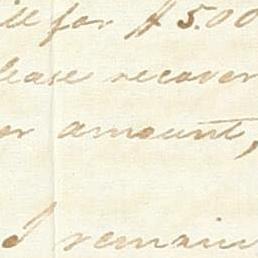 ill for $5.00
lease recover
or amount,
I remain